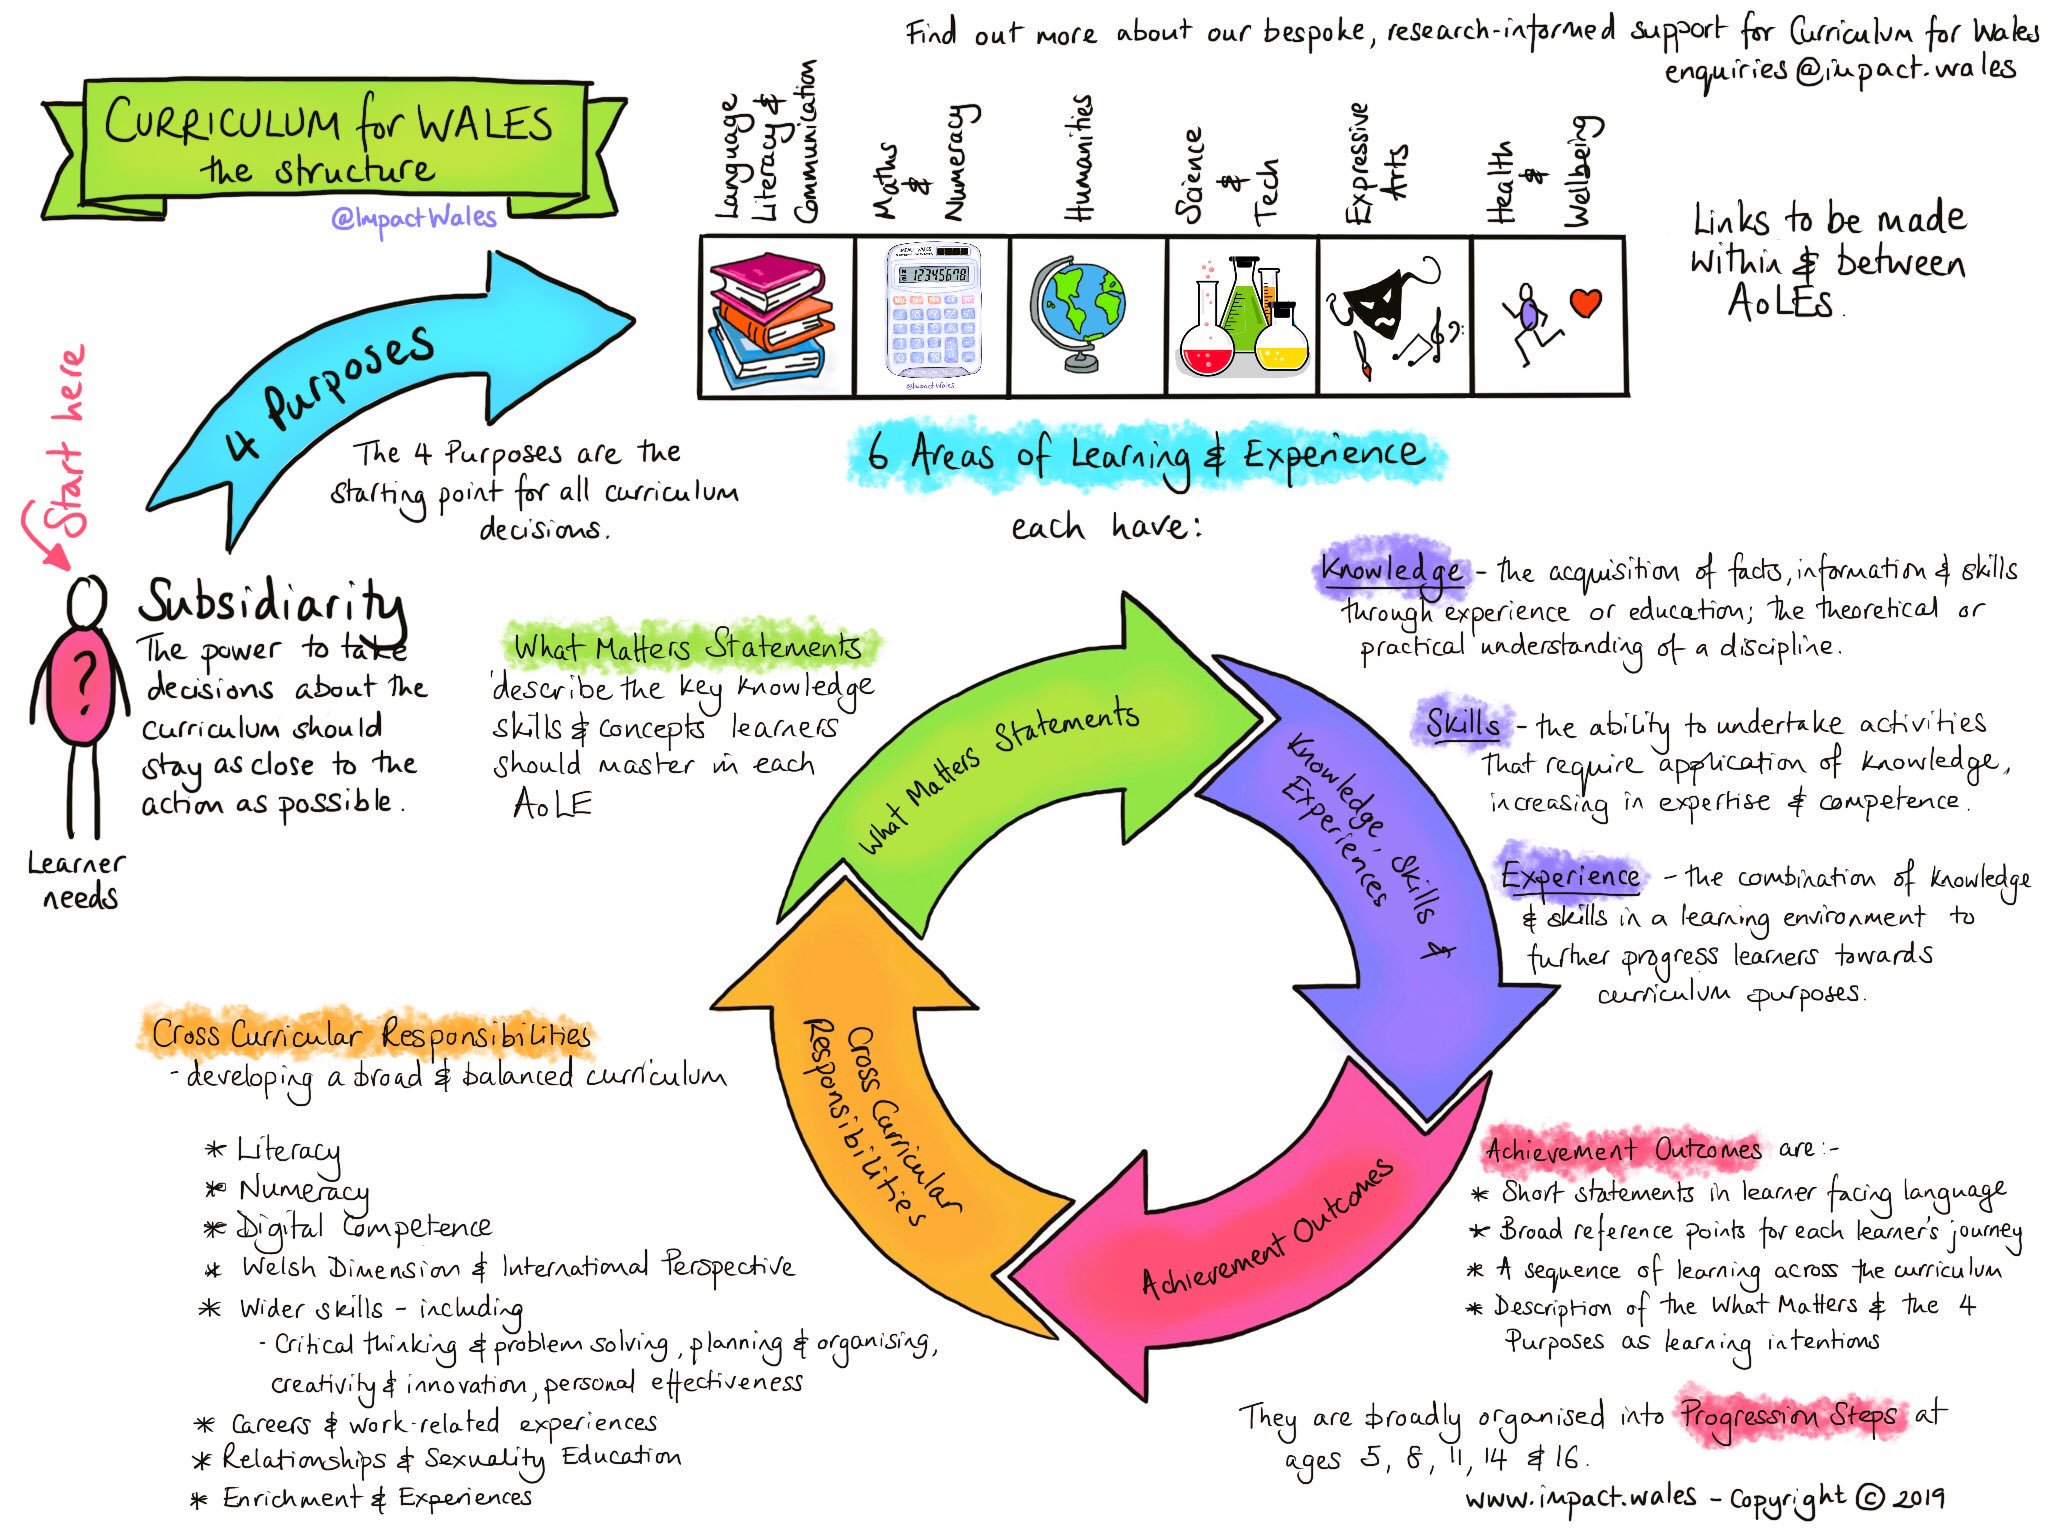 Find out more about our bespoke, research-informed support for Curriculum for Wales
enquiries@impact.wales
CURRICULUM for WALES
the structure
@ImpactWales
Language
Literacy &
Communication
Maths
&
Numeracy
Humanities
Science
&
Tech
Expressive
Arts
Health
&
Wellbeing
12345678
@ImpactWales
Links to be made
within & between
AoLEs.
4 Purposes
Start here
The 4 Purposes are the
starting point for all curriculum
decisions.
6 Areas of Learning & Experience
each have:
?
Learner
needs
Subsidiarity
The power to take
decisions about the
curriculum should
stay as close to the
action as possible.
What Matters Statements
describe the key knowledge
skills & concepts learners
should master in each
AoLE
Knowledge - the acquisition of facts, information & skills
through experience or education; the theoretical or
practical understanding of a discipline.
Skills - the ability to undertake activities
that require application of knowledge,
increasing in expertise & competence.
Experience - the combination of knowledge
& skills in a learning environment to
further progress learners towards
curriculum purposes.
What Matters Statements
Knowledge, Skills &
Experiences
Achievement Outcomes
Cross Curricular
Responsibilities
Cross Curricular Responsibilities
- developing a broad & balanced curriculum
* Literacy
* Numeracy
* Digital Competence
* Welsh Dimension & International Perspective
* Wider skills - including
- Critical thinking & problem solving, planning & organising,
creativity & innovation, personal effectiveness
* Careers & work-related experiences
* Relationships & Sexuality Education
* Enrichment & Experiences
Achievement Outcomes are:-
* Short statements in learner facing language
* Broad reference points for each learner's journey
* A sequence of learning across the curriculum
* Description of the What Matters & the 4
Purposes as learning intentions
They are broadly organised into Progression Steps at
ages 5, 8, 11, 14 & 16.
www.impact.wales - Copyright © 2019